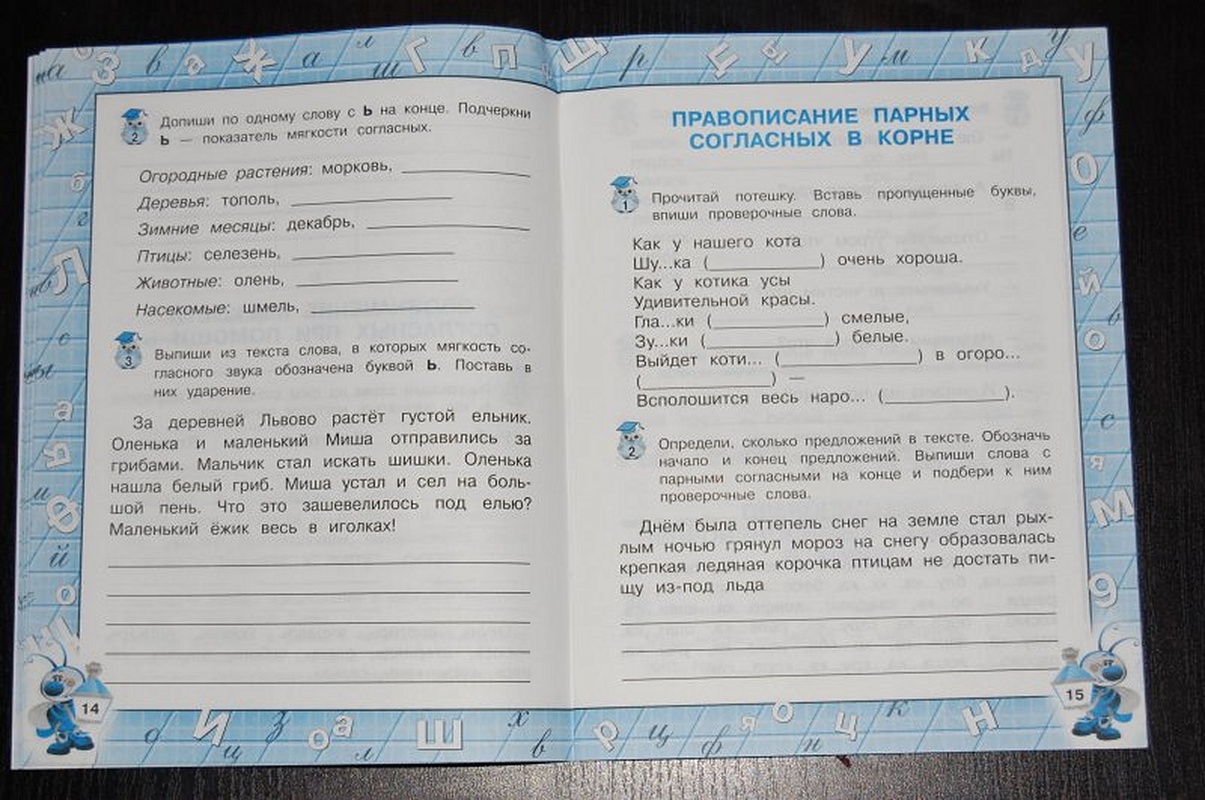 2
Допиши по одному слову с Ь на конце. Подчеркни
Ь — показатель мягкости согласных.
Огородные растения: морковь, ____________
Деревья: тополь, ____________
Зимние месяцы: декабрь, ____________
Птицы: селезень, ____________
Животные: олень, ____________
Насекомые: шмель, ____________
3
Выпиши из текста слова, в которых мягкость со-
гласного звука обозначена буквой Ь. Поставь в
них ударение.
За деревней Львово растёт густой ельник.
Оленька и маленький Миша отправились за
грибами. Мальчик стал искать шишки. Оленька
нашла белый гриб. Миша устал и сел на боль-
шой пень. Что это зашевелилось под елью?
Маленький ёжик весь в иголках!
14
ПРАВОПИСАНИЕ ПАРНЫХ
СОГЛАСНЫХ В КОРНЕ
1
Прочитай потешку. Вставь пропущенные буквы,
впиши проверочные слова.
Как у нашего кота
Шу...ка (____________) очень хороша.
Как у котика усы
Удивительной красы.
Гла...ки (____________) смелые,
Зу...ки (____________) белые.
Выйдет коти... (____________) в огоро...
(____________) —
Всполошится весь наро... (____________).
2
Определи, сколько предложений в тексте. Обозначь
начало и конец предложений. Выпиши слова с
парными согласными на конце и подбери к ним
проверочные слова.
Днём была оттепель снег на земле стал рых-
лым ночью грянул мороз на снегу образовалась
крепкая ледяная корочка птицам не достать пи-
щу из-под льда
15